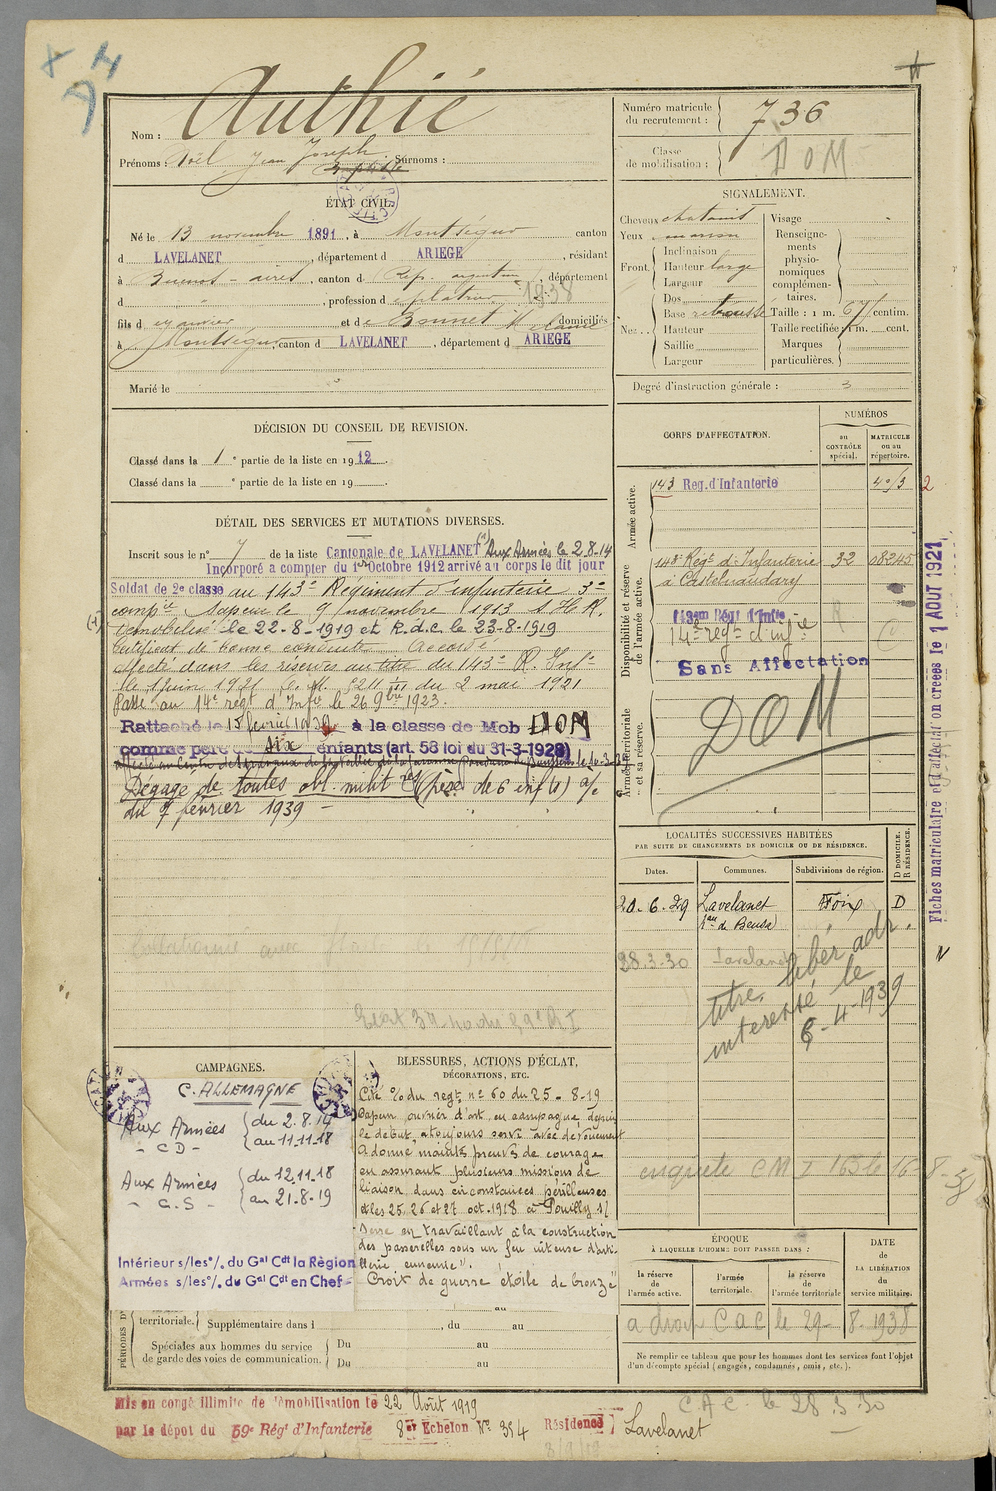 Authié
Nom :
Prénoms : Noël Jean Joseph Surnoms :
ÉTAT CIVIL.
Né le 13 novembre 1891, à Montségur canton
d LAVELANET, département d ARIEGE, résidant
à Buenos-aires, canton d Rép. argentine, département
d , profession d platrier
fils d et de Bonnet domiciliés
à Montségur, canton d LAVELANET, département d ARIEGE
Marié le
DÉCISION DU CONSEIL DE REVISION.
Classé dans la 1 e partie de la liste en 1912.
Classé dans la e partie de la liste en 19
DÉTAIL DES SERVICES ET MUTATIONS DIVERSES.
Inscrit sous le n° 7 de la liste Cantonale de LAVELANET (1) Aux Armées le 2.8.14
Incorporé a compter du 1er Octobre 1912 arrivé au corps le dit jour
Soldat de 2e classe au 143e Régiment d'infanterie 3e
compie Sapeur le 9 novembre 1913
(1) Démobilisé le 22-8-1919 et R.d.c. le 23-8-1919
Certificat de bonne conduite Accordé
affecté dans les réserves au titre du 143e R. Infie
le 1 juin 1921 C. M. du 2 mai 1921
Passé au 14e régt d'Infie le 26 9bre 1923.
Rattaché le 15 février 1930 à la classe de Mob DOM
comme père de six enfants (art. 58 loi du 31-3-1928)
Dégagé de toutes obl. militres (père de 6 enf(s)) a/c
du 7 février 1939 -
CAMPAGNES.
C. ALLEMAGNE
Aux Armées { du 2.8.14
- C D - { au 11.11.18
Aux Armées { du 12.11.18
- C.S - { au 21-8-19
Intérieur s/les°/. du Gal Cdt la Région
Armées s/les°/. du Gal Cdt en Chef
BLESSURES, ACTIONS D'ÉCLAT,
DÉCORATIONS, ETC.
Cité % du regt n° 60 du 25-8-19
Sapeur ouvrier d'art, en campagne depuis
le début, a toujours servi avec dévouement
A donné maintes preuves de courage
en assurant plusieurs missions de
liaison dans circonstances périlleuses
et les 25, 26 et 27 oct. 1918 à Pouilly s/
Serre en travaillant à la construction
des passerelles sous un feu intense d'arti-
llerie ennemie".
Croix de guerre étoile de bronze
PÉRIODES D
territoriale. Supplémentaire dans l , du au
Spéciales aux hommes du service { Du au
de garde des voies de communication. { Du au
Mis en congé illimité de démobilisation le 22 Août 1919
par le dépot du 59e Régt d'Infanterie 8e Echelon N° 354 Résidence } Lavelanet
Numéro matricule
du recrutement : 736
Classe
de mobilisation : DOM
SIGNALEMENT.
Cheveux chatains
Yeux marron
Front. { Inclinaison
Hauteur large
Largeur
Nez { Dos
Base retroussé
Hauteur
Saillie
Largeur
Visage
Renseigne-
ments
physio-
nomiques
complémen-
taires.
Taille : 1 m. 67 centim.
Taille rectifiée : 1 m. cent.
Marques
particulières.
Degré d'instruction générale : 3
CORPS D'AFFECTATION.
NUMÉROS
au
CONTRÔLE
spécial.
MATRICULE
ou au
répertoire.
Armée active.
143 Reg. d'Infanterie
2
Disponibilité et réserve
de l'armée active.
143e Régt d'Infanterie 32 08245
à Castelnaudary
14e régt d'infie
Sans Affectation
Armée territoriale
et sa réserve.
DOM
Fiches matriculaire et d'affectat on creées le 1 AOUT 1921
LOCALITÉS SUCCESSIVES HABITÉES
PAR SUITE DE CHANGEMENTS DE DOMICILE OU DE RÉSIDENCE.
Dates. Communes. Subdivisions de région. D DOMICILE. R RÉSIDENCE.
20.6.29 Lavelanet Foix D
28.3.30 Lavelanet
titre liber adr.
interessé le
6-4-1939
ÉPOQUE
À LAQUELLE L'HOMME DOIT PASSER DANS :
la réserve
de
l'armée active.
l'armée
territoriale.
la réserve
de
l'armée territoriale
DATE
de
LA LIBÉRATION
du
service militaire.
a droit C a C le 29-8-1938
Ne remplir ce tableau que pour les hommes dont les services font l'objet
d'un décompte spécial (engagés, condamnés, omis, etc.).
C.A.C. le 28.3.30